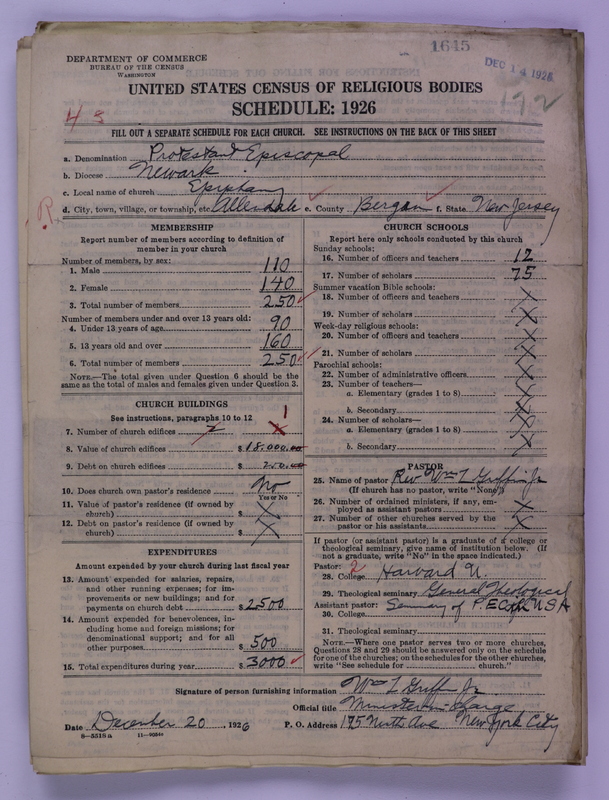 1645
DEC 14 1926
192
DEPARTMENT OF COMMERCE
BUREAU OF THE CENSUS
WASHINGTON
UNITED STATES CENSUS OF RELIGIOUS BODIES
SCHEDULE: 1926
43
FILL OUT A SEPARATE SCHEDULE FOR EACH CHURCH. SEE INSTRUCTIONS ON THE BACK OF THIS SHEET
a. Denomination Protestant Episcopal
b. Diocese Newark
c. Local name of church Epiphany
R. d. City, town, village, or township, etc. Allendale e. County Bergan f. State New Jersey
MEMBERSHIP
Report number of members according to definition of
member in your church
Number of members, by sex:
1. Male 110
2. Female 140
3. Total number of members. 250
Number of members under and over 13 years old:
4. Under 13 years of age 90
5. 13 years old and over 160
6. Total number of members 250
NOTE.—The total given under Question 6 should be the
same as the total of males and females given under Question 3.
CHURCH BUILDINGS
See instructions, paragraphs 10 to 12 1
7. Number of church edifices 2 X
8. Value of church edifices $ 18,000.00
9. Debt on church edifices $ 250.00
10. Does church own pastor's residence No
Yes or No
11. Value of pastor's residence (if owned by
church) $ X
12. Debt on pastor's residence (if owned by
church) $ X
EXPENDITURES
Amount expended by your church during last fiscal year
13. Amount expended for salaries, repairs,
and other running expenses; for im-
provements or new buildings; and for
payments on church debt $ 2500
14. Amount expended for benevolences, in-
cluding home and foreign missions; for
denominational support; and for all
other purposes $ 500
15. Total expenditures during year $ 3000
CHURCH SCHOOLS
Report here only schools conducted by this church
Sunday schools:
16. Number of officers and teachers 12
17. Number of scholars 75
Summer vacation Bible schools:
18. Number of officers and teachers X
19. Number of scholars X
Week-day religious schools:
20. Number of officers and teachers X
21. Number of scholars X
Parochial schools:
22. Number of administrative officers X
23. Number of teachers—
a. Elementary (grades 1 to 8) X
b. Secondary X
24. Number of scholars—
a. Elementary (grades 1 to 8) X
b. Secondary X
PASTOR
25. Name of pastor Rev. Wm L Griffin Jr
(If church has no pastor, write "None")
26. Number of ordained ministers, if any, em-
ployed as assistant pastors X
27. Number of other churches served by the
pastor or his assistants X
If pastor (or assistant pastor) is a graduate of a college or
theological seminary, give name of institution below. (If
not a graduate, write "No" in the space indicated.)
Pastor: 2
28. College Harvard U.
29. Theological seminary General Theological
Assistant pastor: Seminary of P.E. USA
30. College
31. Theological seminary
NOTE.—Where one pastor serves two or more churches,
Questions 28 and 29 should be answered only on the schedule
for one of the churches; on the schedules for the other churches,
write "See schedule for church."
Signature of person furnishing information Wm L Griffin Jr.
Official title Minister in charge
Date December 20, 1926 P. O. Address 175 Ninth Ave New York City
8—5518a